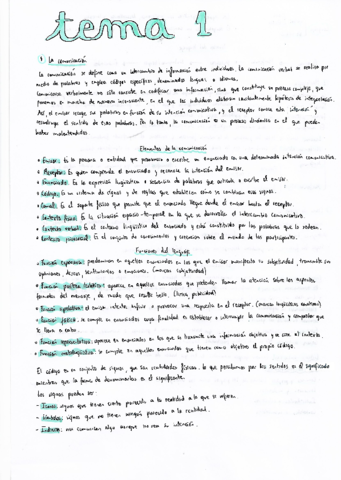 tema 1
1 La comunicación
La comunicación se define como un intercambio de información entre individuos. La comunicación verbal se realiza por
medio de palabras y emplea códigos específicos denominados lenguas o idiomas.
Comunicarse verbalmente no sólo consiste en codificar una información, sino que constituye un proceso complejo, que
ponemos en marcha de manera inconsciente, en el que los individuos elaboran constantemente hipótesis de interpretación.
Así, el emisor escoge sus palabras en función de su intención comunicativa, y el receptor capta esta intención y
reconstruye el sentido de esas palabras. Por lo tanto, la comunicación es un proceso dinámico en el que pueden
haber malentendidos
Elementos de la comunicación
• Emisor: Es la persona o entidad que pronuncia o escribe un enunciado con una determinada intención comunicativa.
• Receptor: Es quien comprende el enunciado y reconoce la intención del emisor.
• Enunciado: Es la expresión lingüística o secuencia de palabras que articula o escribe el emisor.
• Código: Es un sistema de signos y de reglas que establecen cómo se combinan esos signos.
• Canal: Es el soporte físico que permite que el enunciado llegue desde el emisor hasta el receptor.
• Contexto físico: Es la situación espacio-temporal en la que se desarrolla el intercambio comunicativo
• Contexto verbal: Es el entorno lingüístico del enunciado y está constituido por las palabras que lo rodean.
• Contexto Es el conjunto de conocimientos y creencias sobre el mundo de los participantes.
Funciones del lenguaje
• Función expresiva: predominan en aquellos enunciados en los que el emisor manifiesta su subjetividad, transmite sus
opiniones, deseos, sentimientos o emociones. (mucha subjetividad)
• Función poética (estética): aparece en aquellos enunciados que pretenden llamar la atención sobre los aspectos
formales del mensaje, de modo que resulte bello. (lírica, publicidad)
• Función apelativa: el emisor intenta influir o provocar una respuesta en el receptor.
• Función fática: se cumple en enunciados cuya finalidad es establecer o interrumpir la comunicación y comprobar que
se lleva a cabo.
• Función representativa: aparece en enunciados en los que se transmite una información objetiva y se crea el contexto
• Función metalingüística: se cumple en aquellos enunciados que tienen como objetivo el propio código.
El código es un conjunto de signos, que son realidades físicas. Lo que percibimos por los sentidos es el significado
mientras que la forma de denominarlos es el significante.
Los signos pueden ser:
- Iconos: signos que tienen cierto parecido a la realidad a la que se refiere.
- Símbolos: signos que no tienen ningún parecido a la realidad.
- Indicios: nos comunican algo aunque no sea su intención.